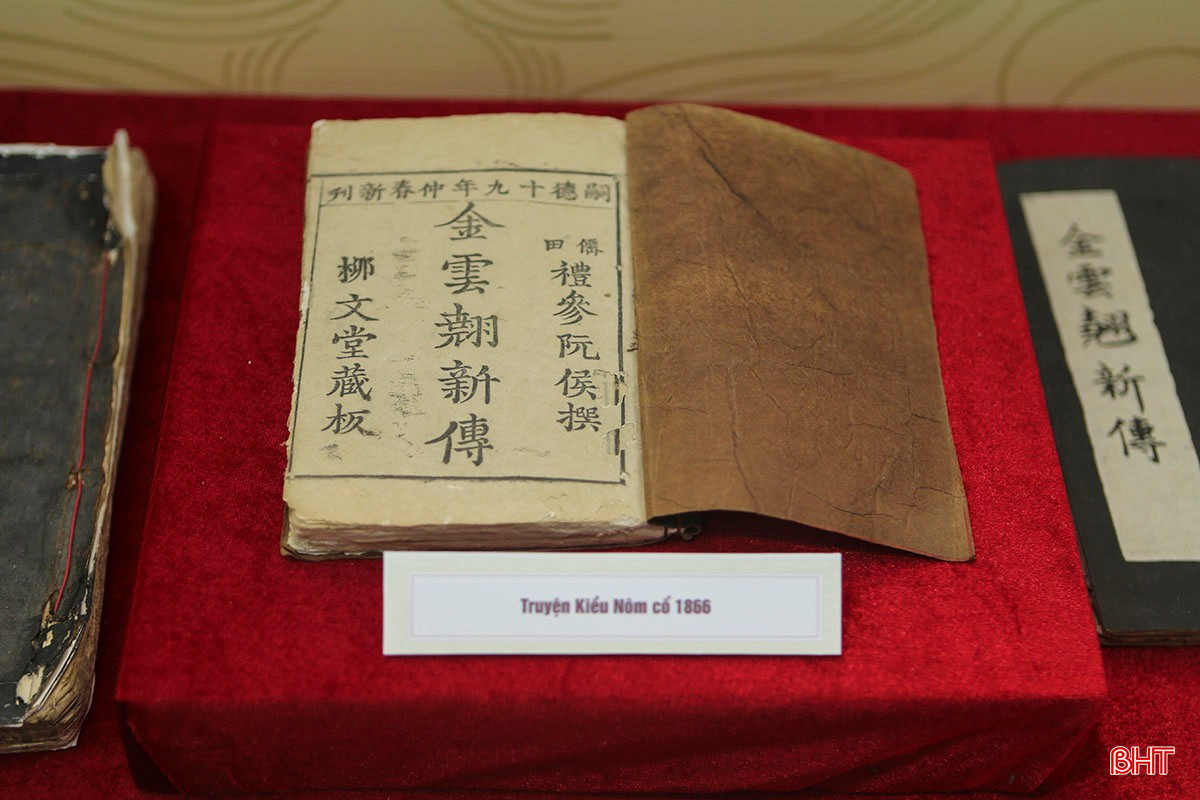 嗣德十九年仲春新刊
僊田禮參阮侯撰
金雲翹新傳
柳文堂藏板
Truyện Kiều Nôm cổ 1866
金雲翹新傳
BHT